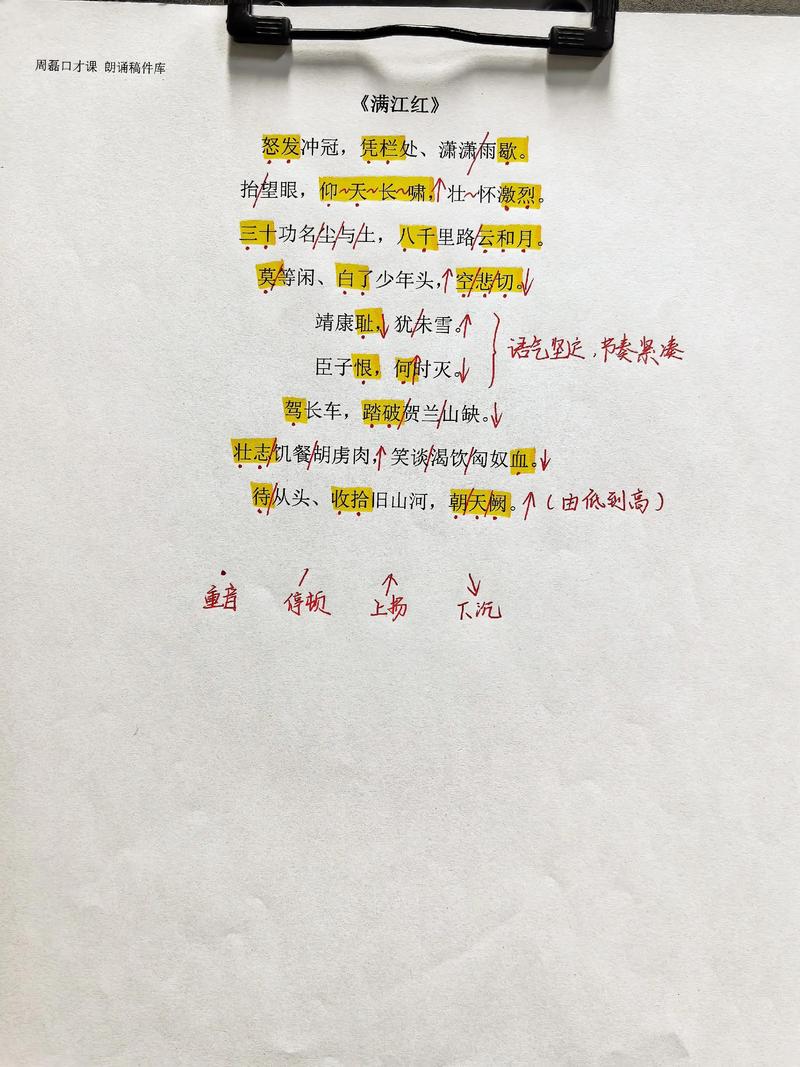 周磊口才课 朗诵稿件库
《满江红》
怒发冲冠，凭栏处、潇潇/雨歇。
抬/望眼，仰~天~长~啸，↑壮~怀激烈。
三十/功名/尘/与/土，八千里路/云和月。
莫/等闲、白了少年头，↑空/悲/切。↓
靖康耻，↓犹/未雪。↑
臣子恨，何↑时灭。↓
语气坚定，节奏紧凑
驾长车，踏破/贺兰/山缺。↓
壮志/饥餐/胡虏肉，↑笑谈/渴饮/匈奴血。↓
待/从头、收拾旧山河，朝/天/阙。↑（由低到高）
· / ↑ ↓
重音 停顿 上扬 下沉